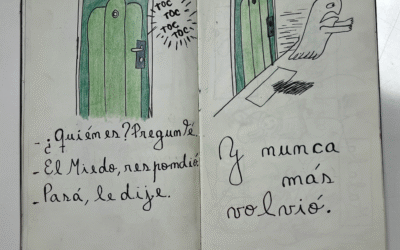 TOC
TOC
TOC
TOC.
- ¿Quién es? Pregunté.
- El Miedo, respondió.
- Pasá, le dije.
Y nunca
más
volvió.